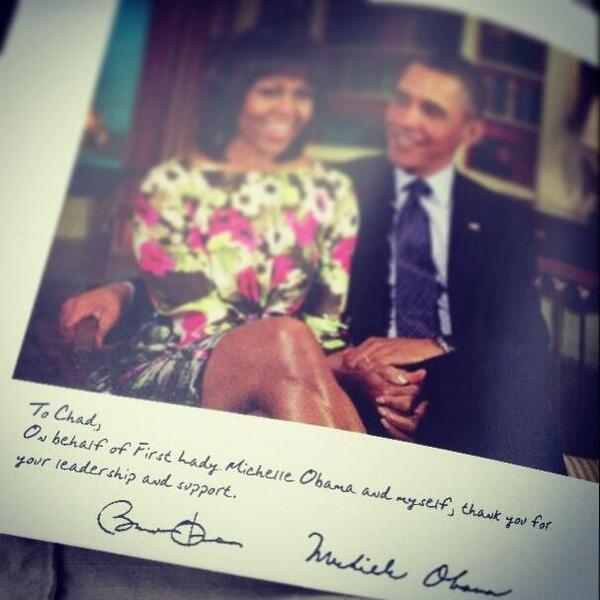 To Chad,
On behalf of First Lady Michelle Obama and myself, thank you for
your leadership and support.
Michelle Obama